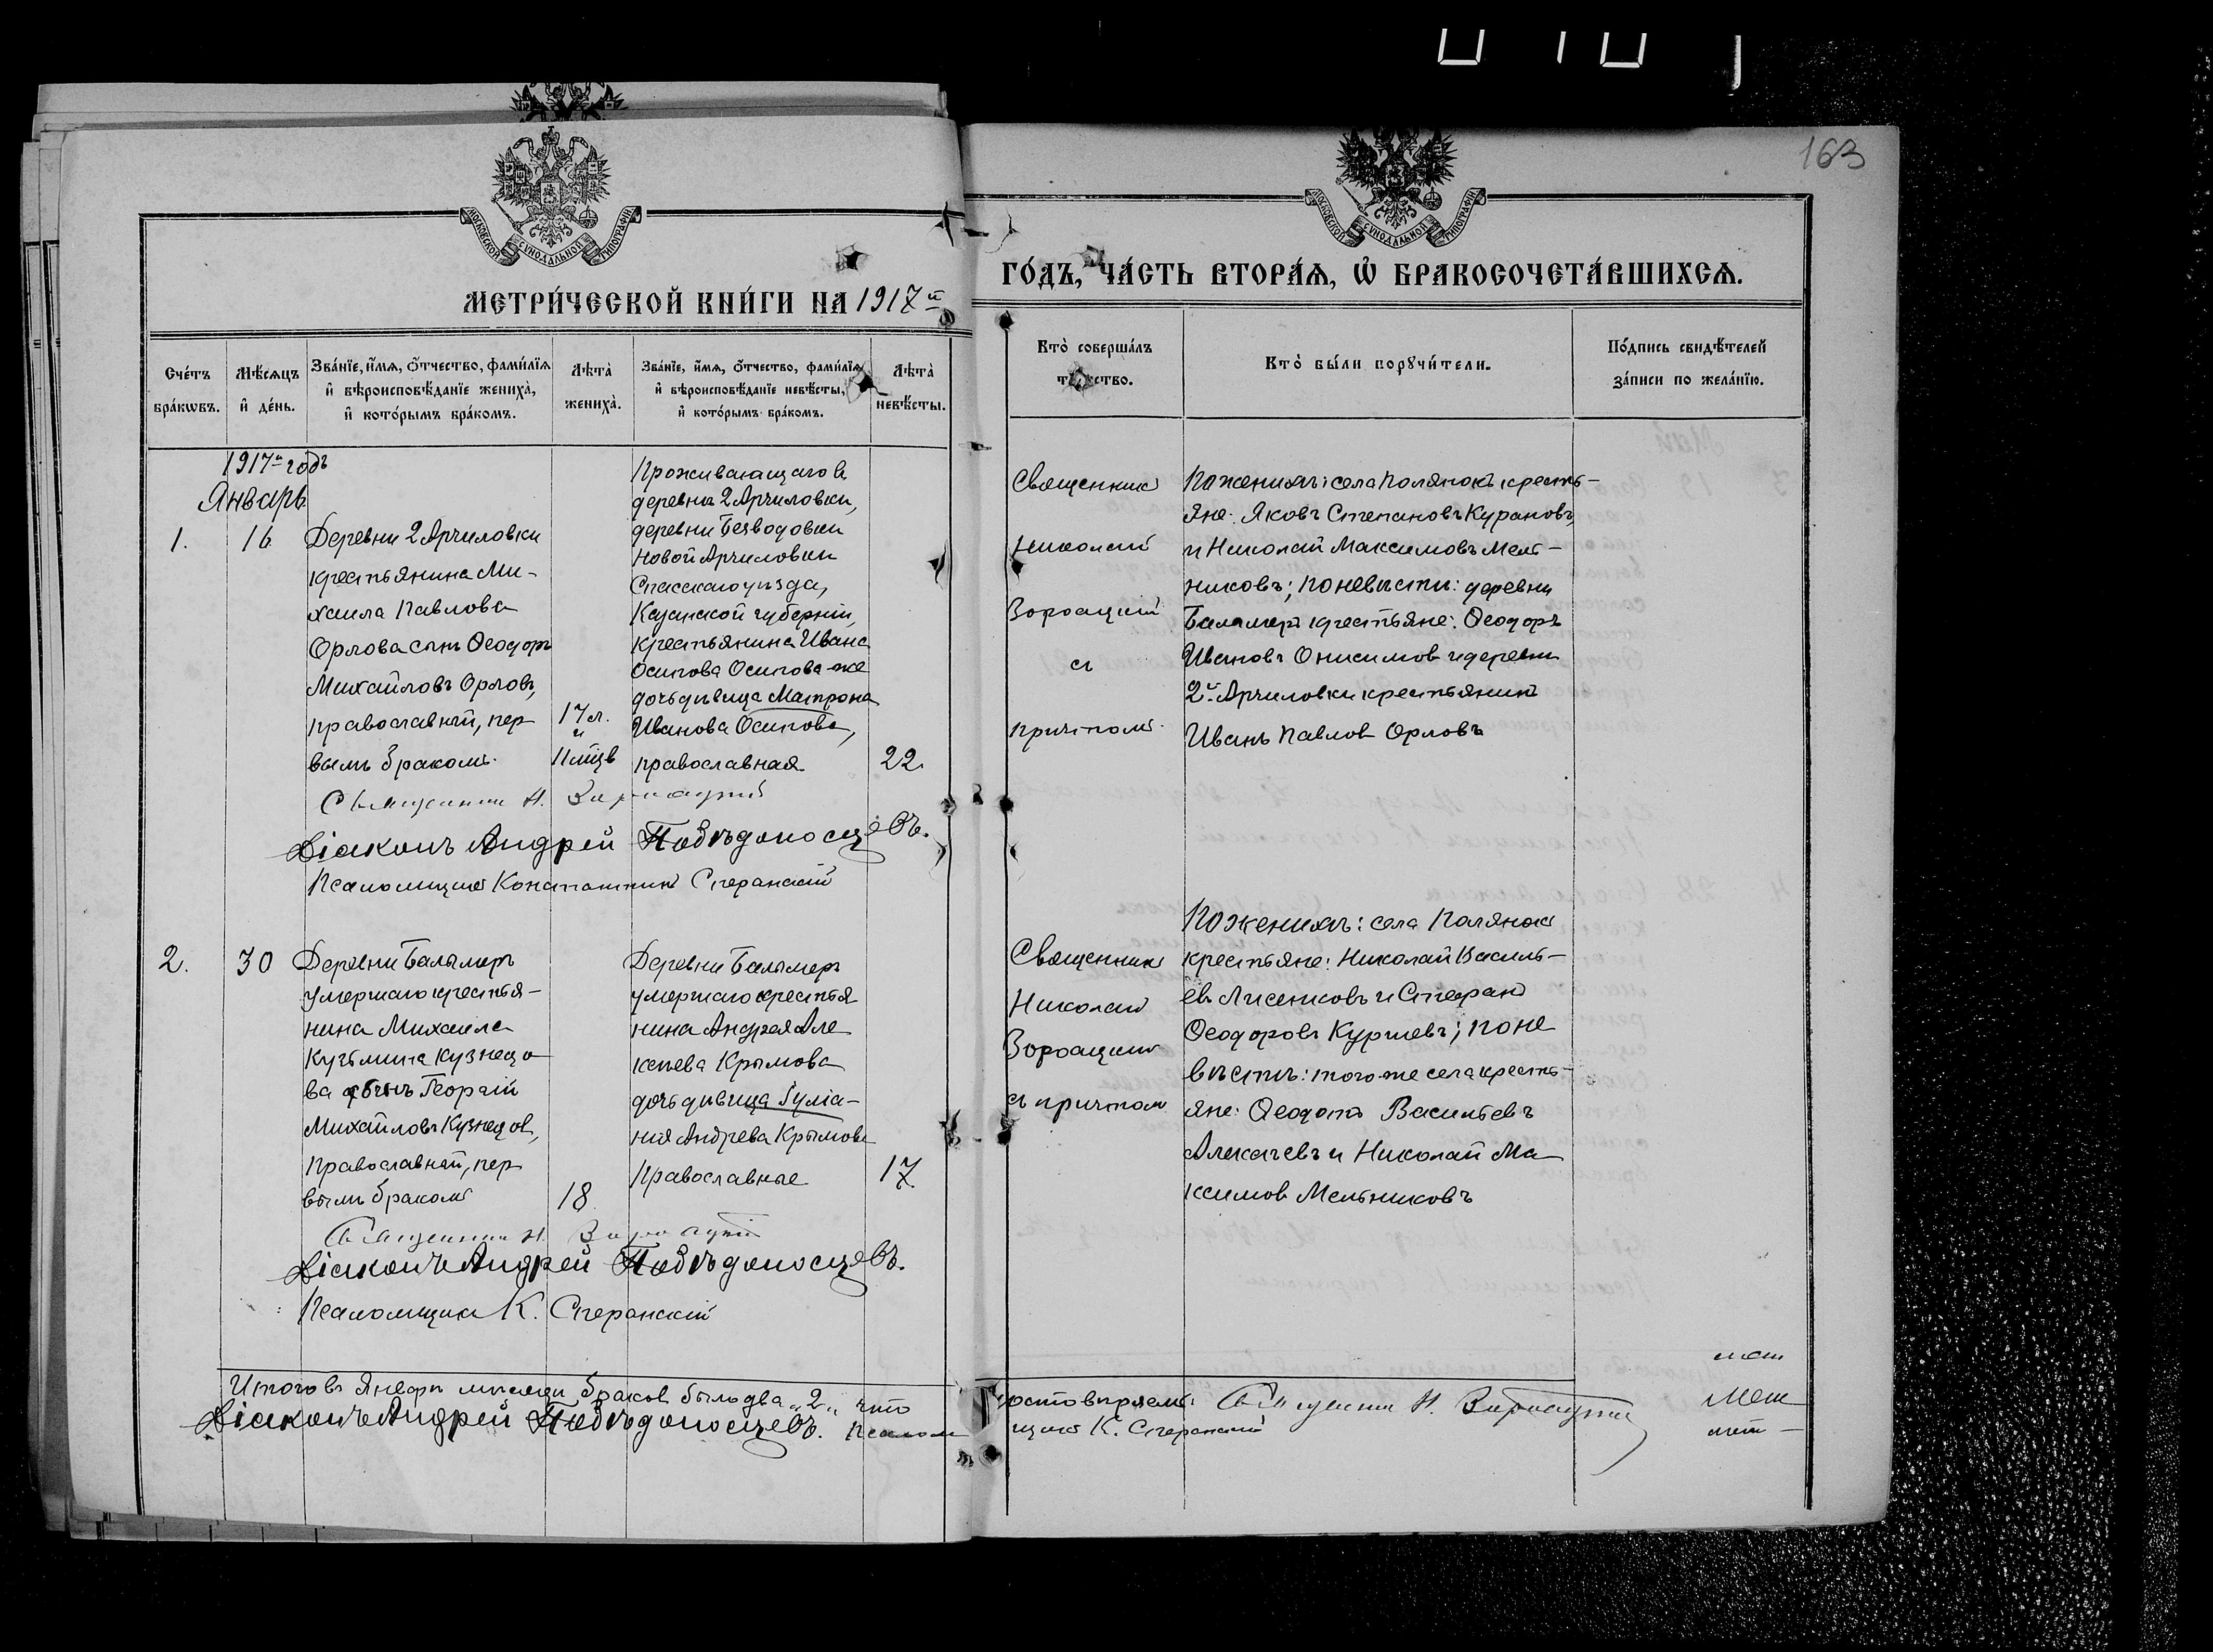 163
МОСКОВСКОЙ СУНОДАЛЬНОЙ ТИПОГРАФІИ
МОСКОВСКОЙ СУНОДАЛЬНОЙ ТИПОГРАФІИ
МЕТРИ́ЧЕСКОЙ КНИ́ГИ НА 1917й
ГО́ДЪ, ЧА́СТЬ ВТОРА́Я, Ѡ҆ БРАКОСОЧЕТА́ВШИХСѦ.
Сче́тъ бра́кѡвъ.
Мѣ́сѧцъ и҆ де́нь.
Зва́нїе, и҆́мѧ, ѻ҆́тчество, фами́лїѧ
и҆ вѣроисповѣ́данїе жениха̀,
и҆ кото́рымъ бра́комъ.
Лѣ́та̀ жениха̀.
Зва́нїе, и҆́мѧ, ѻ҆́тчество, фами́лїѧ
и҆ вѣроисповѣ́данїе невѣ́сты,
и҆ кото́рымъ бра́комъ.
Лѣ́та̀ невѣ́сты.
Кто̀ соверша́лъ
та́инство.
Кто̀ бы́ли порꙋчи́тели.
По́дпись свидѣ́телей
за́писи по жела́нїю.
1917й годъ
Январь
1.
16
Деревни 2 Арчиловки
крестьянина Ми-
хаила Павлова
Орлова сынъ Ѳеодоръ
Михайловъ Орловъ,
православный, пер
вымъ бракомъ.
17 л.
и
Проживающаго в
деревни 2 Арчиловки,
деревни Безводовки
Новой Арчиловки
Спасскаго уѣзда,
Казанской губерніи,
крестьянина Ивана
Осипова Осипова-же
дочь дѣвица Матрона
Иванова Осипова,
православная
22.
Священникъ
Николай
Зороацкій
съ
причтомъ.
По женихѣ: села Полянокъ кресть-
яне: Яковъ Степановъ Курановъ,
и Николай Максимовъ Мель-
никовъ; по невѣсти: деревни
Балымеръ крестьяне: Ѳеодоръ
Ивановъ Онисимов и деревни
2й Арчиловки крестьянинъ
Иванъ Павлов Орловъ
Священникъ Н. Зороацкій
Діаконъ Андрей Побѣдоносцевъ.
Псаломщикъ Константинъ Сперанскій
2.
30
Деревни Балымеръ
умершаго крестья-
нина Михаила
Кузьмина Кузнецо
ва сынъ Георгій
Михайловъ Кузнецов,
православный, пер
вымъ бракомъ
18
Деревни Балымеръ
умершаго крестья
нина Андрея Але
ксѣева Крымова
дочь дѣвица Іуліа-
нія Андрева Крымова
Православные
17
Священникъ
Николай
Зороацкій
съ причтом
По женихѣ: села Полянокъ
крестьяне: Николай Василь-
ев Лисенковъ и Стефанъ
Ѳеодоровъ Куршевъ; по не
вѣстѣ: того же села кресть-
яне: Ѳеодотъ Васильевъ
Алекачевъ и Николай Ма
ксимов Мельниковъ
Священникъ Н. Зороацкій
Діаконъ Андрей Побѣдоносцевъ.
Псаломщикъ К. Сперанскій
Итого въ Январѣ мѣсяцѣ браковъ было два „2„ что
достовѣряемъ: Священникъ Н. Зороацкій
Діаконъ Андрей Побѣдоносцевъ. Псалом
щикъ К. Сперанскій